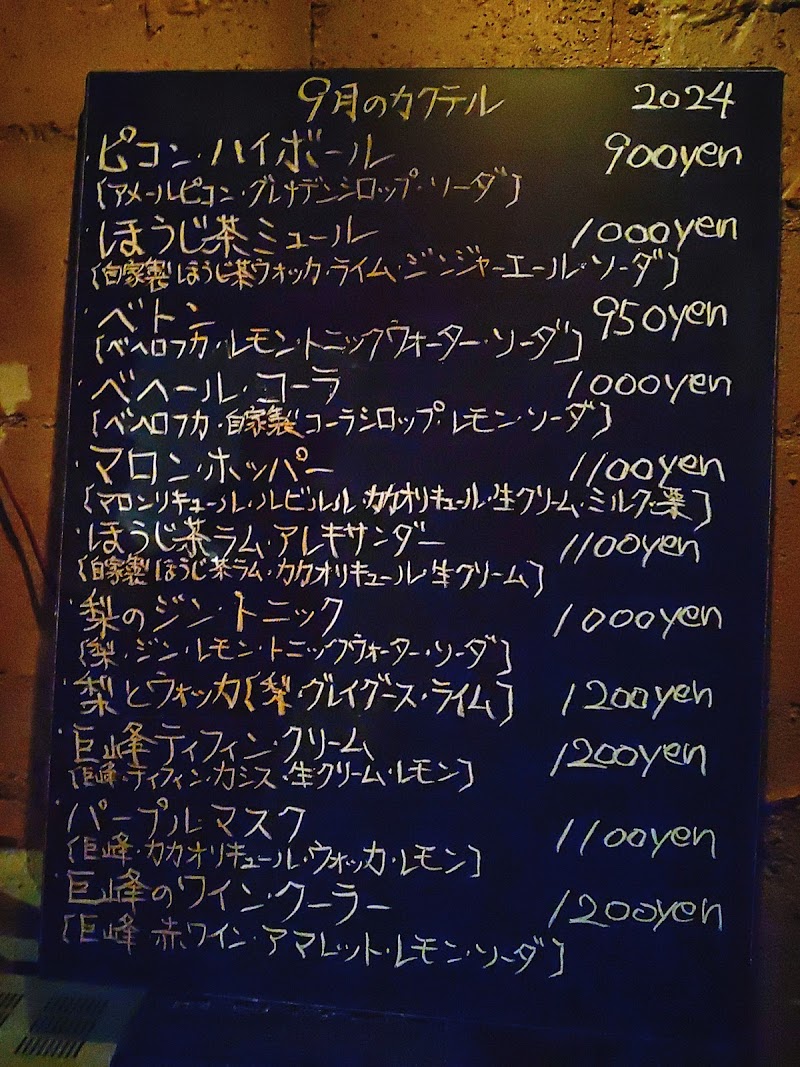 9月のカクテル 2024
・ピコン・ハイボール 900yen
[アメールピコン・グレナデンシロップ・ソーダ]
・ほうじ茶ミュール 1000yen
[自家製ほうじ茶ウォッカ・ライム・ジンジャーエール・ソーダ]
・ベトン 950yen
[ベヘロフカ・レモン・トニックウォーター・ソーダ]
・ベヘール・コーラ 1000yen
[ベヘロフカ・自家製コーラシロップ・レモン・ソーダ]
・マロン・ホッパー 1100yen
[マロンリキュール・ルビルル・カカオリキュール・生クリーム・ミルク・栗]
・ほうじ茶ラム・アレキサンダー 1100yen
[自家製ほうじ茶ラム・カカオリキュール・生クリーム]
・梨のジン・トニック 1000yen
[梨・ジン・レモン・トニックウォーター・ソーダ]
・梨とウォッカ[梨・グレイグース・ライム] 1200yen
・巨峰ティフィン・クリーム 1200yen
[巨峰・ティフィン・カシス・生クリーム・レモン]
・パープル・マスク 1100yen
[巨峰・カカオリキュール・ウォッカ・レモン]
・巨峰のワイン・クーラー 1200yen
[巨峰 赤ワイン・アマレット・レモン・ソーダ]